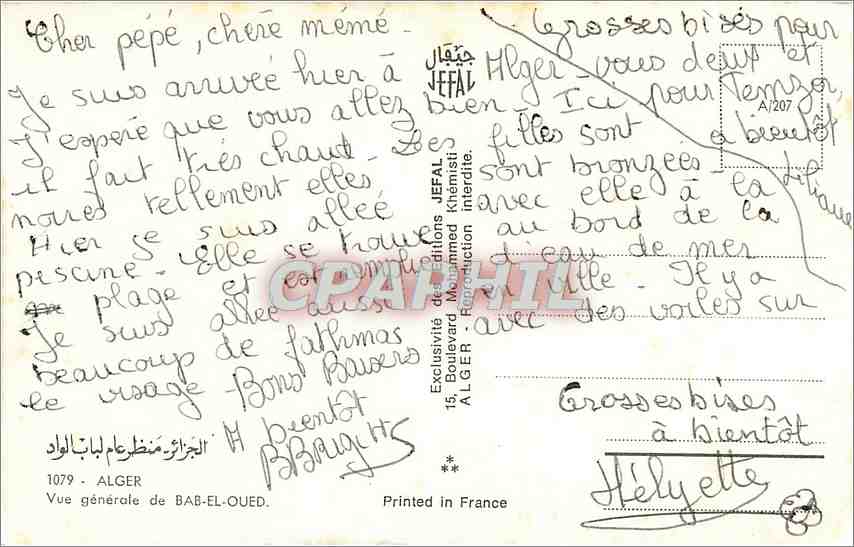 Cher pépé, chère mémé -
Je suis arrivée hier à Alger - 
J'espère que vous allez bien - Ici pour
il fait très chaud - Les filles sont
noires tellement elles sont bronzées -
Hier je suis allée avec elle à la
piscine - Elle se trouve au bord de la
plage et est remplie d'eau de mer
Je suis allée aussi en ville - Il y a
beaucoup de fathmas avec des voiles sur
le visage - Bons Baisers
A bientôt
BBRigitte
Grosses bises pour
vous deux et
Temzor,
a bientôt
Liliane
Grosses bises
à bientôt
Hélyette
جيفال
JEFAL
A/207
Exclusivité des Editions JEFAL
15, Boulevard Mohammed Khémisti
ALGER - Reproduction interdite.
CPAPHIL
الجزائر - منظر عام لباب الواد
1079 - ALGER
Vue générale de BAB-EL-OUED.
Printed in France